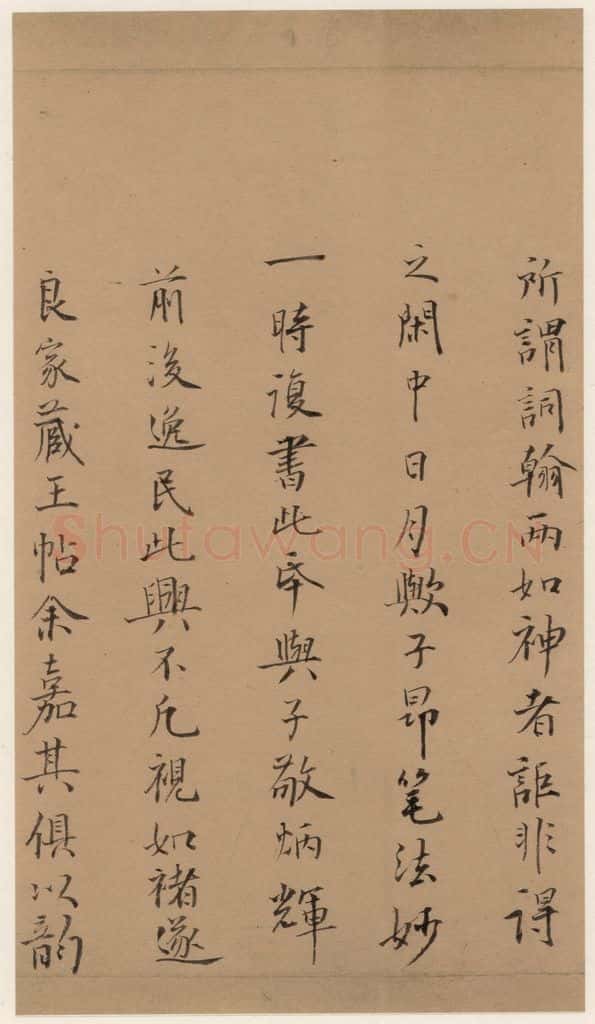 所謂詞翰兩如神者詎非得
之閑中日月歟子昂筆法妙
一時復書此卒與子敬炳輝
前後逸民此興不凡視如褚遂
良家藏王帖余嘉其俱以韵
Shufawang.CN